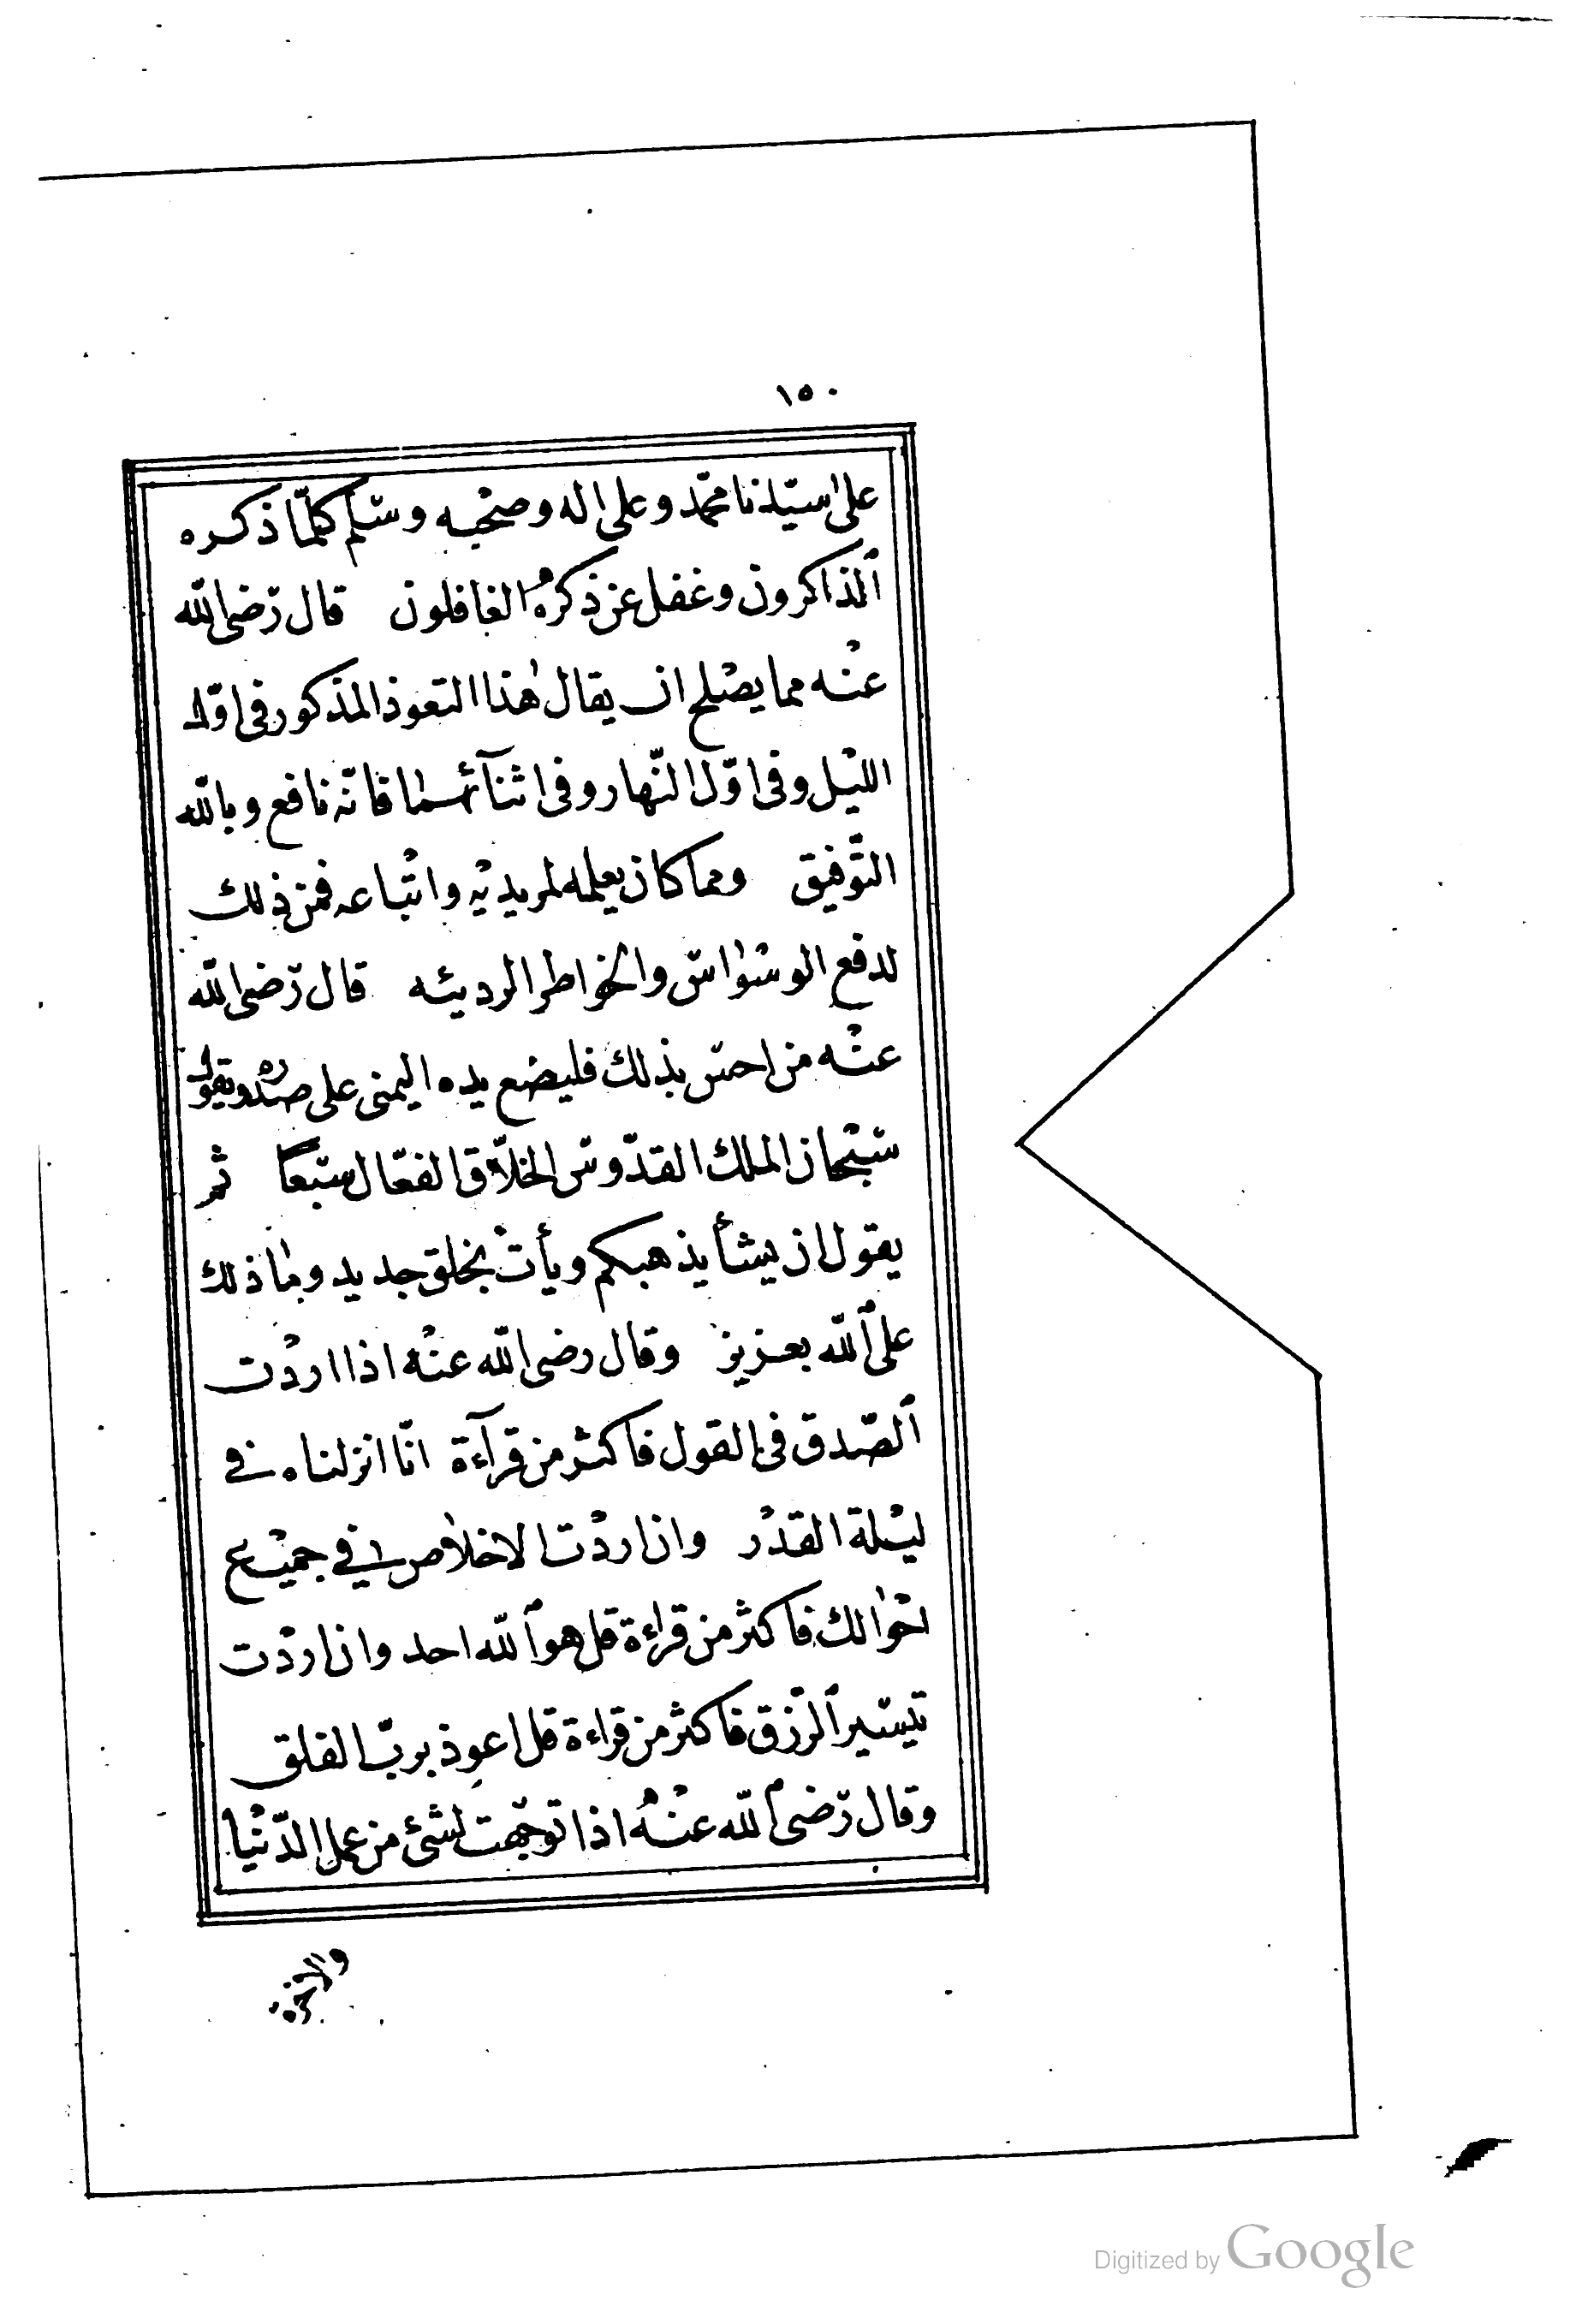 ١٥٠
على سيّدنا محمّد وعلى اله وصحْبه وسَلم كلّما ذكره
ٱلذاكرون وغفل عن ذكرهُ الغافلون قال رَضى الله
عنْه مما يصْلح ان يقال هٰذا التعوذ المذكور فى اوّل
الليْل وفى اوّل النّهار وفى اثنآئهما فانّه نافع وبالله
التَّوفيق ومما كان يعلمه لمريديْه واتْباعه فمن ذلك
لدفع الوسْوٰاس والخواطر الرديئه قال رَضى الله
عنْه من احسّ بذلك فليضع يده اليمنى على صدْره ويقول
سُبْحان الملك القدّوس الخلاّق الفعّال سبْعًا ثم
يقول ان يشأ يذهبكم ويأتْ بخلق جديد ومٰا ذلك
على ٱلله بعزيز وقال رضى الله عنْه اذا اردْت
ٱلصّدق فى القول فاكثر من قرآءة انّا انزلناه فى
ليْلة القدْر وان اردْت الاخلاص فى جميْع
احْوٰالك فاكثر من قراءة قل هو ٱلله احد وان اردْت
تيسير ٱلرّزق فاكثر من قراءة قل اعوذ بربّ الفلق
وقال رَضى ٱلله عنْهُ اذا توجّهت لشئ من عمل الدّنْيا
والاخرة
Digitized by Google